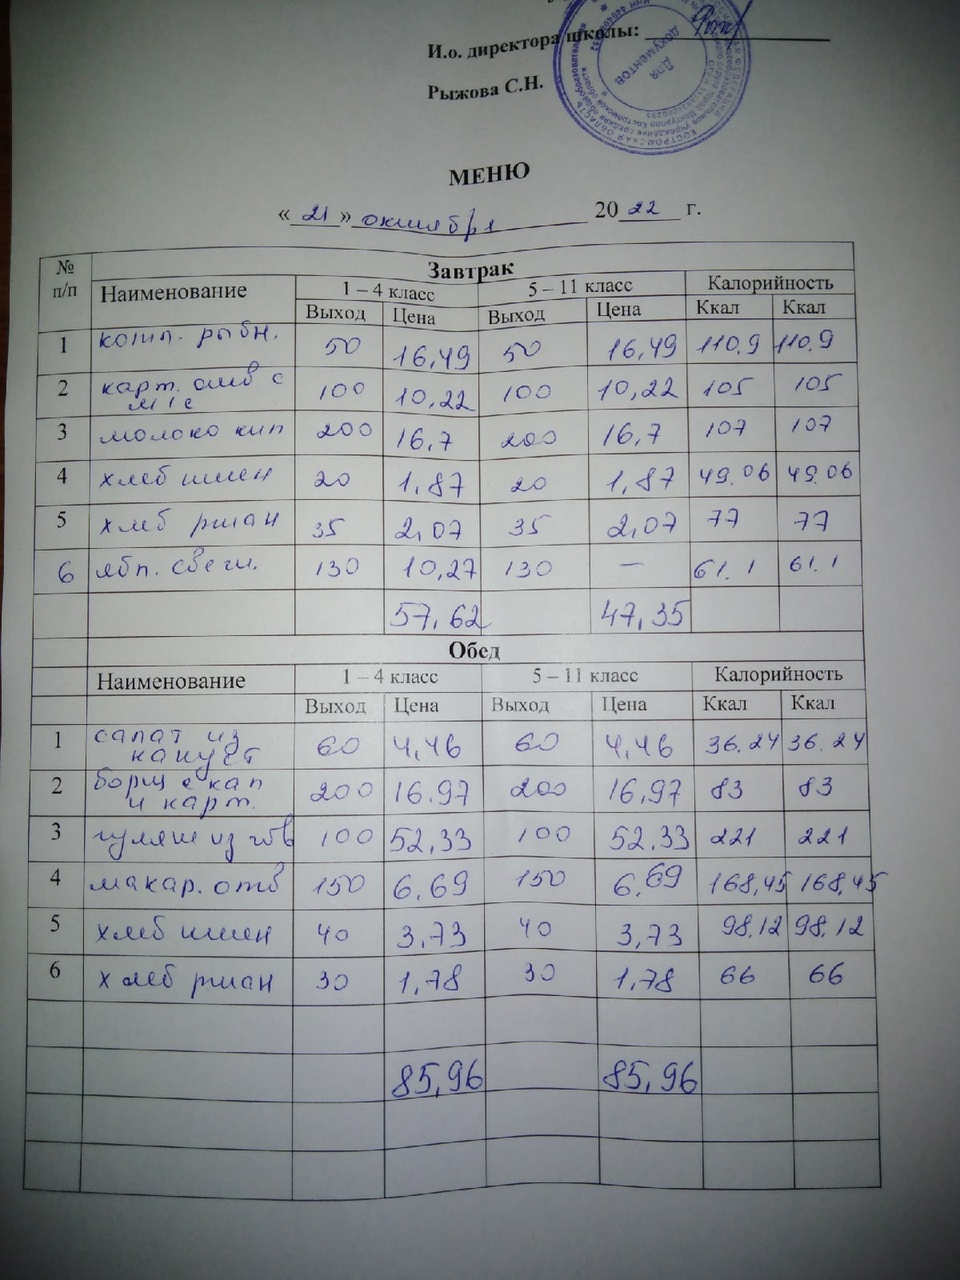 И.о. директора школы:
Рыжова С.Н.
Для
документов
МЕНЮ
« 21 » октября 2022 г.
№ п/п Завтрак
Наименование 1 – 4 класс 5 – 11 класс Калорийность
Выход Цена Выход Цена Ккал Ккал
1 котл. рыбн. 50 16,49 50 16,49 110,9 110,9
2 карт. отв с м/с 100 10,22 100 10,22 105 105
3 молоко кип 200 16,7 200 16,7 107 107
4 хлеб пшен 20 1,87 20 1,87 49.06 49.06
5 хлеб ржан 35 2,07 35 2,07 77 77
6 ябл. свеж. 130 10,27 130 — 61.1 61.1
57,62 47,35
Обед
Наименование 1 – 4 класс 5 – 11 класс Калорийность
Выход Цена Выход Цена Ккал Ккал
1 салат из капуст 60 4,46 60 4,46 36.24 36.24
2 борщ с кап и карт. 200 16.97 200 16,97 83 83
3 гуляш из гов 100 52,33 100 52,33 221 221
4 макар. отв 150 6,69 150 6,69 168,45 168,45
5 хлеб пшен 40 3,73 40 3,73 98.12 98.12
6 хлеб ржан 30 1,78 30 1,78 66 66
85,96 85,96